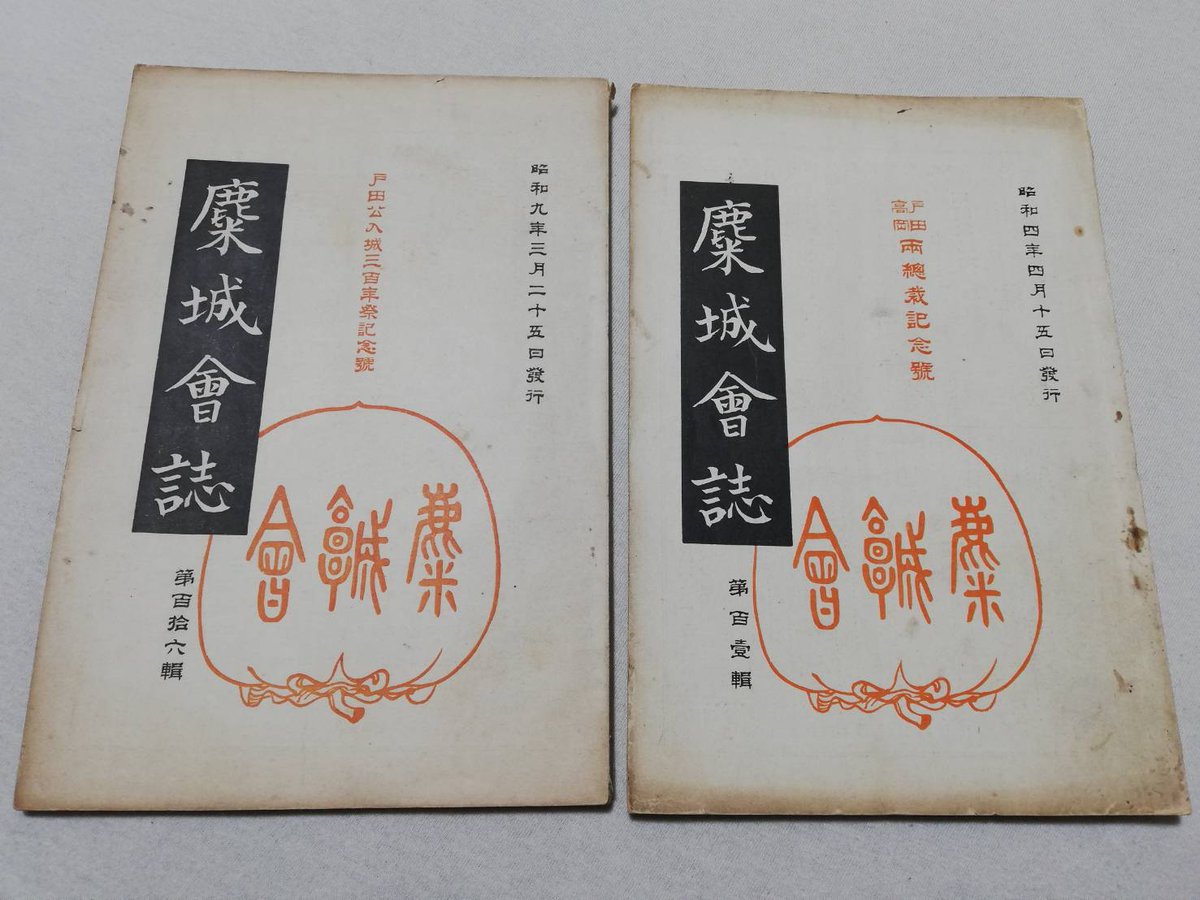 昭和九年三月二十五日發行
戶田公入城三百年祭記念號
麋城會誌
麋城會
第百拾六輯
昭和四年四月十五日發行
戶田
高岡
兩總裁記念號
麋城會誌
麋城會
第百壹輯